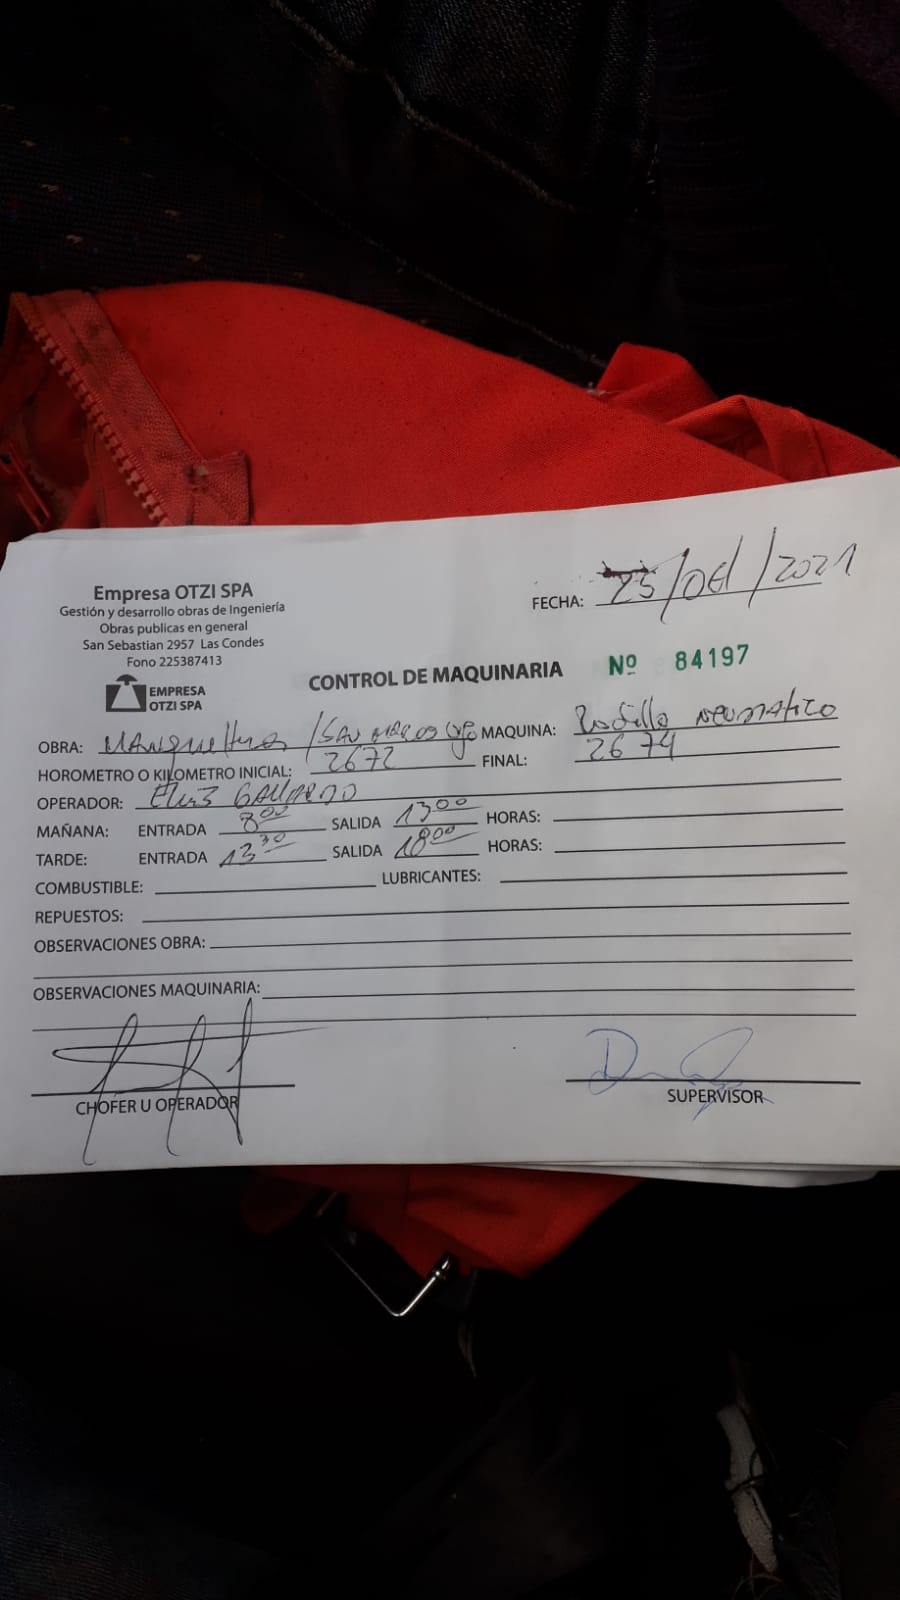 Empresa OTZI SPA
Gestión y desarrollo obras de Ingeniería
Obras publicas en general
San Sebastian 2957 Las Condes
Fono 225387413
EMPRESA
OTZI SPA
FECHA: /2021
CONTROL DE MAQUINARIA Nº 84197
OBRA: /SAN MARCOS MAQUINA: Rodillo NEUMATICO
HOROMETRO O KILOMETRO INICIAL: 2672 FINAL: 2674
OPERADOR: GALLARDO
MAÑANA: ENTRADA 8:00 SALIDA 13:00 HORAS:
TARDE: ENTRADA 13:30 SALIDA 18:00 HORAS:
COMBUSTIBLE: LUBRICANTES:
REPUESTOS:
OBSERVACIONES OBRA:
OBSERVACIONES MAQUINARIA:
CHOFER U OPERADOR SUPERVISOR